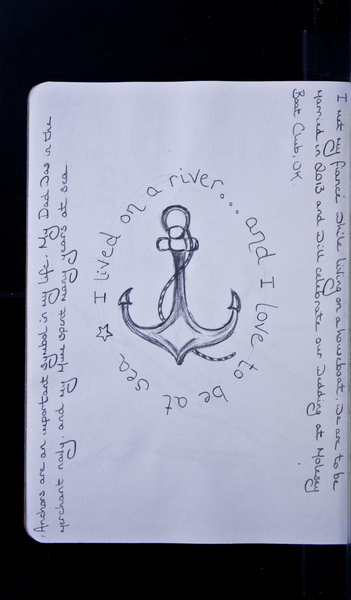 Anchors are an important symbol in my life. My Dad was in the
merchant navy, and my spent many years at sea
I lived on a river... and I love to be at sea
I met my fiancé while living on a houseboat. We are to be
married in 2013 and will celebrate our wedding at Molesey
Boat Club, UK.